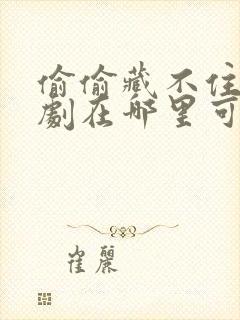 偷偷藏不住
劇在哪里可
崔麗